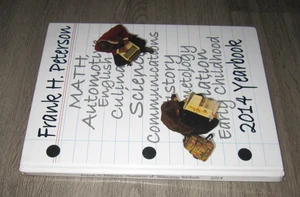 Frank H. Peterson
MATH
Automoti
English
Culina
Science
Communications
story
metology
tion
Early Childhood
2014 Yearbook
2014